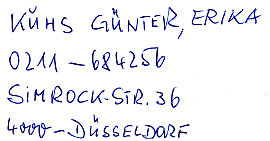 KÜHS GÜNTER, ERIKA
0211 - 684256
SIMROCK-STR. 36
4000 - DÜSSELDORF